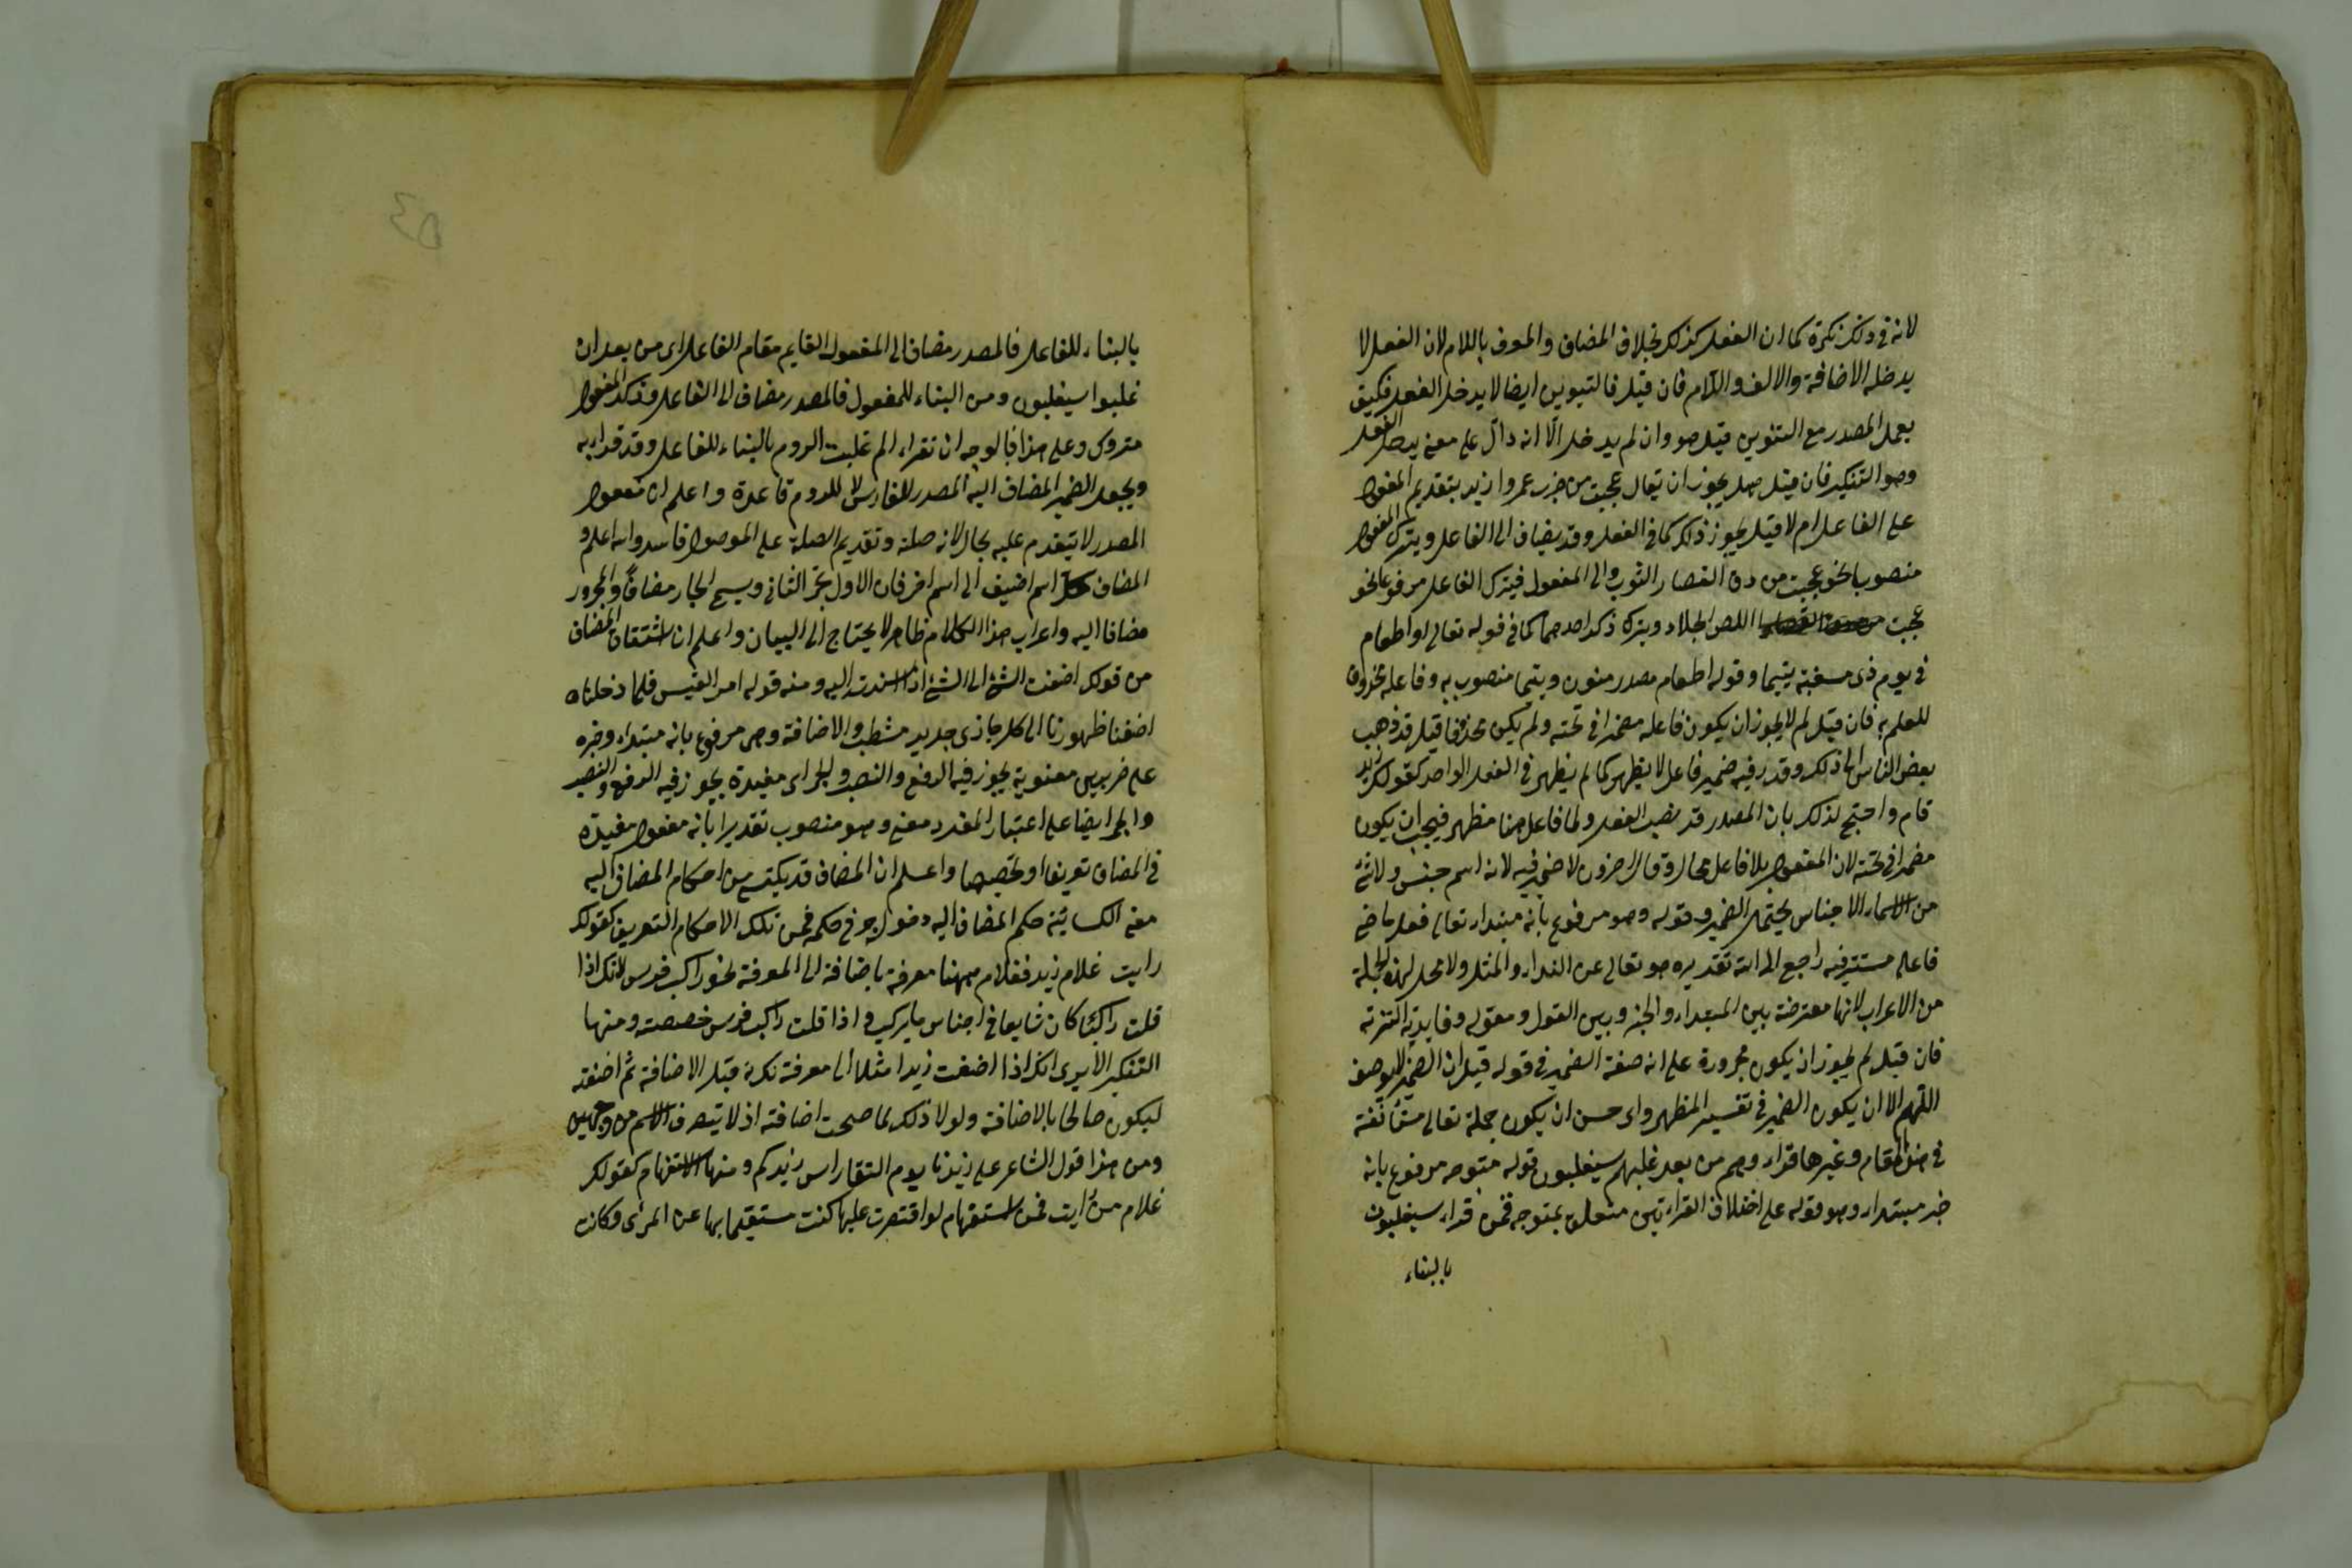 لانه في ذلك نكرة كما ان الفعل كذلك بخلاف المضاف والمعرف باللام لان الفعل لا
يدخله الاضافة والالف واللام فان قيل فالتنوين ايضا لا يدخل الفعل فكيف
يعمل المصدر مع التنوين قيل هو وان لم يدخل الا انه دال على معنى يدخل الفعل
وهو التنكير فان قيل هل يجوز ان يقال عجبت من ضرب عمروا زيد بتقديم المفعول
على الفاعل ام لا قيل يجوز ذلك كما في الفعل وقد يضاف الى الفاعل ويترك المفعول
منصوبا نحو عجبت من دق القصار الثوب والى المفعول فيترك الفاعل مرفوعا نحو
عجبت من اللص الجلاد ويترك ذكر احدهما كما في قوله تعالى او اطعام
في يوم ذى مسغبة يتيما وقوله اطعام مصدر منون ويتيما منصوب به وفاعله محذوف
للعلم به فان قيل لم لا يجوز ان يكون فاعله مضمرا في تحته ولم يكن محذوفا قيل قد ذهب
بعض الناس الى ذلك وقدر فيه ضمير فاعل لا يظهر كما لم يظهر في الفعل الواحد كقولك زيد
قام واحتج لذلك بان المصدر قد نصب المفعول ولا فاعل هنا مظهر فيجب ان يكون
مضمرا في تحته لان المفعول بلا فاعل محال وقال اخرون لا ضمير فيه لانه اسم جنس ولا شئ
من الاسماء الاجناس يحتمل الضمير قوله وهو مرفوع بانه مبتداء تعالى فعل ماضي
فاعله مستتر فيه راجع الى الله تقديره هو تعالى عن الانداد والمثل ولا محل لهذه الجملة
من الاعراب لانها معترضة بين المبتداء والخبر وبين القول ومقوله وفايدته التنزيه
فان قيل لم يجوز ان يكون مجرورة على انه صفة الضمير في قوله قيل ان الضمير لا يوصف
اللهم الا ان يكون الضمير في تفسير المظهر واى حسن ان يكون جملة تعالى مستأنفة
في هذا المقام وغيرها قراء وهم من بعد غلبهم سيغلبون قوله متوجه مرفوع بانه
خبر مبتداء وهو قوله على اختلاف القراءتين متعلق بمتوجه فمن قراء سيغلبون
بالبناء
بالبناء للفاعل فالمصدر مضاف الى المفعول القايم مقام الفاعل اى من بعد ان
غلبوا سيغلبون ومن البناء للمفعول فالمصدر مضاف الى الفاعل وذكر المفعول
متروك وعلى هذا فالوجه ان تقراء الم غلبت الروم بالبناء للفاعل وقد قراء به
ويجعل الضمير المضاف اليه المصدر للفارس لا للروم قاعدة واعلم ان مفعول
المصدر لا يتقدم عليه بحال لانه صلة وتقديم الصلة على الموصول فاسد والله اعلم و
المضاف كل اسم اضيف الى اسم اخر فان الاول يجر الثانى ويسمى الجار مضافا والمجرور
مضافا اليه واعراب هذا الكلام ظاهر لا يحتاج الى البيان واعلم ان اشتقاق المضاف
من قولك اضفت الشئ الى الشئ اذا اسندته اليه ومنه قوله امرء القيس فلما دخلناه
اضفنا ظهورنا الى كل حارى جديد مشطب والاضافة وهى مرفوع بانه مبتداء وخبره
على ضربين معنوية يجوز فيه الرفع والنصب والجر اى مفيدة يجوز فيه الرفع والنصب
والجر ايضا على اعتبار المقدر معنى وهو منصوب تقديرا بانه مفعول مفيدة
في المضاف تعريفا او تخصيصا واعلم ان المضاف قد يكتسى من احكام المضاف اليه
معنى حكم المضاف اليه فمن تلك الاحكام التعريف كقولك
رايت غلام زيد فغلام ههنا معرفة باضافة الى المعرفة نحو راكب فرس لانك اذا
قلت راكب كان شايعا في اجناس ما يركب واذا قلت راكب فرس خصصته ومنها
التنكير الا يرى انك اذا اضفت زيدا مثلا الى معرفة نكرته قبل الاضافة ثم اضفته
ليكون صالحا بالاضافة ولولا ذلك لما صحت اضافته اذ لا يتعرف الاسم من وجهين
ومن هذا قول الشاعر على زيدنا يوم النقا راس زيدكم ومنها الاستفهام كقولك
غلام من رايت فمن استفهام لو اقتصرت عليها كنت مستفهما بها عن المرئى فكانت